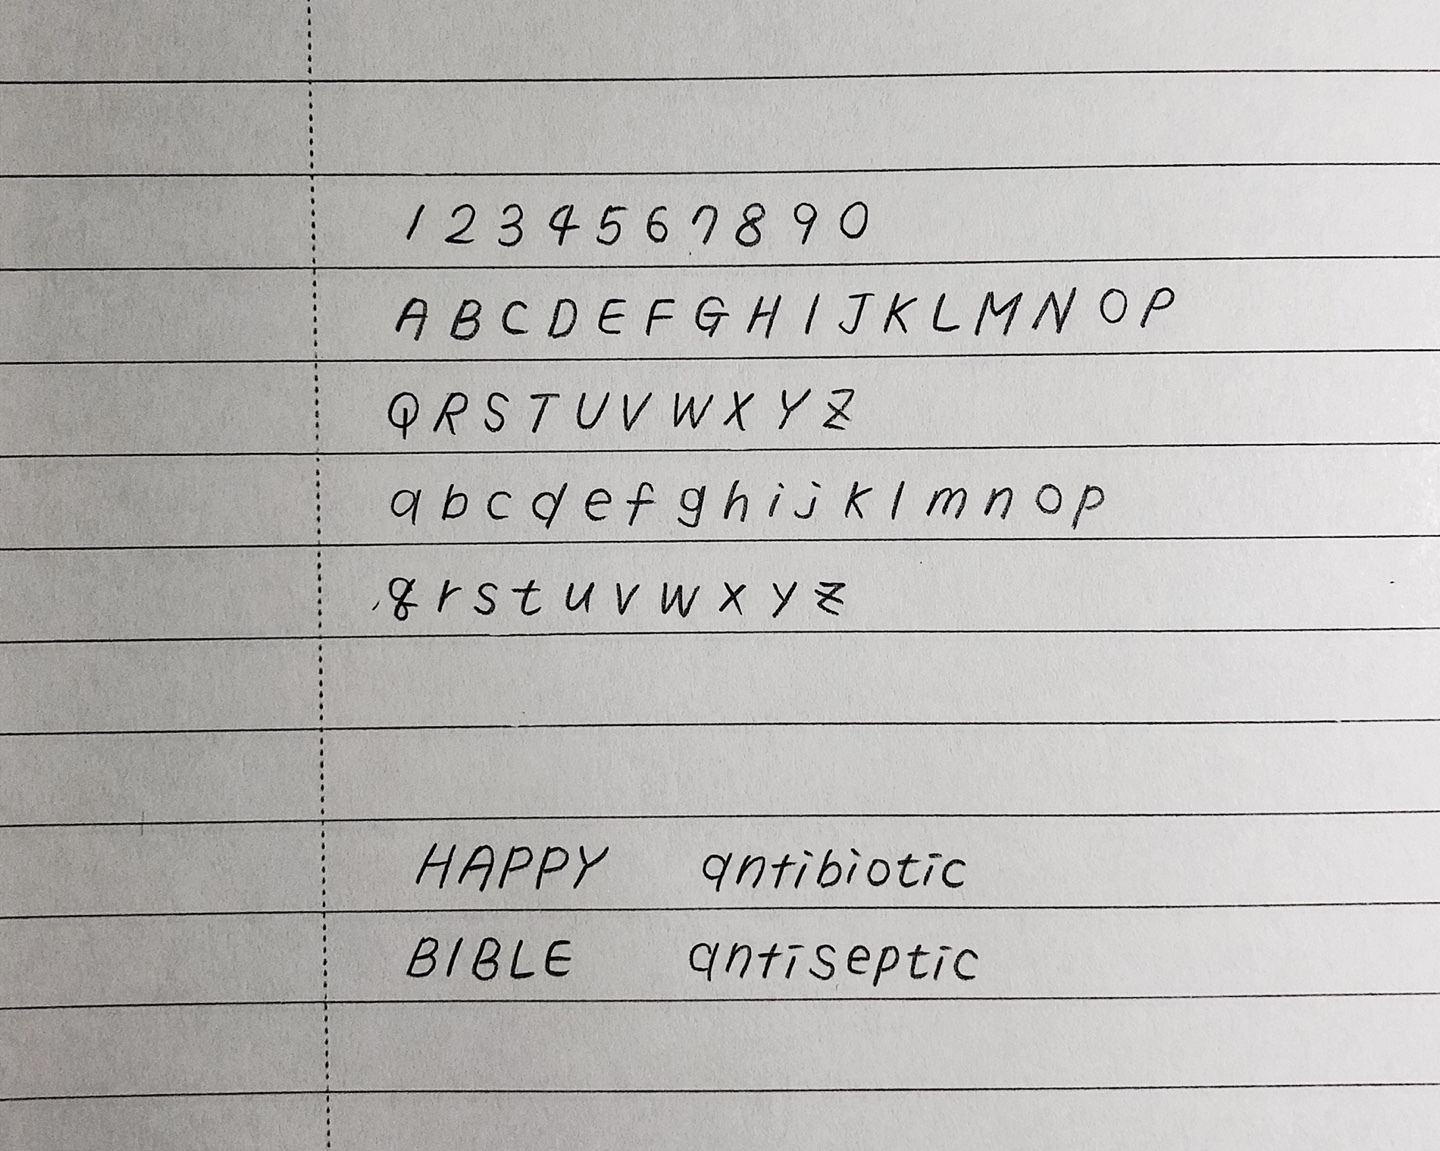 1 2 3 4 5 6 7 8 9 0
A B C D E F G H I J K L M N O P
Q R S T U V W X Y Z
a b c d e f g h i j k l m n o p
q r s t u v w x y z
HAPPY antibiotic
BIBLE antiseptic